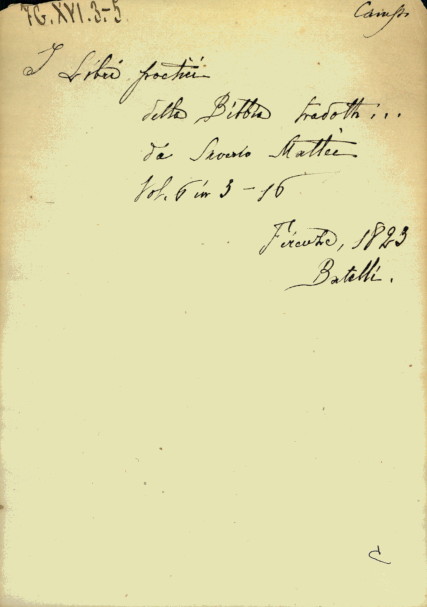 7G.XVI.3-5.
I Libri poetici
della Bibbia tradotti...
da Saverio Mattei
Vol. 6 in 3 - 16
Firenze, 1823
Batelli.
C